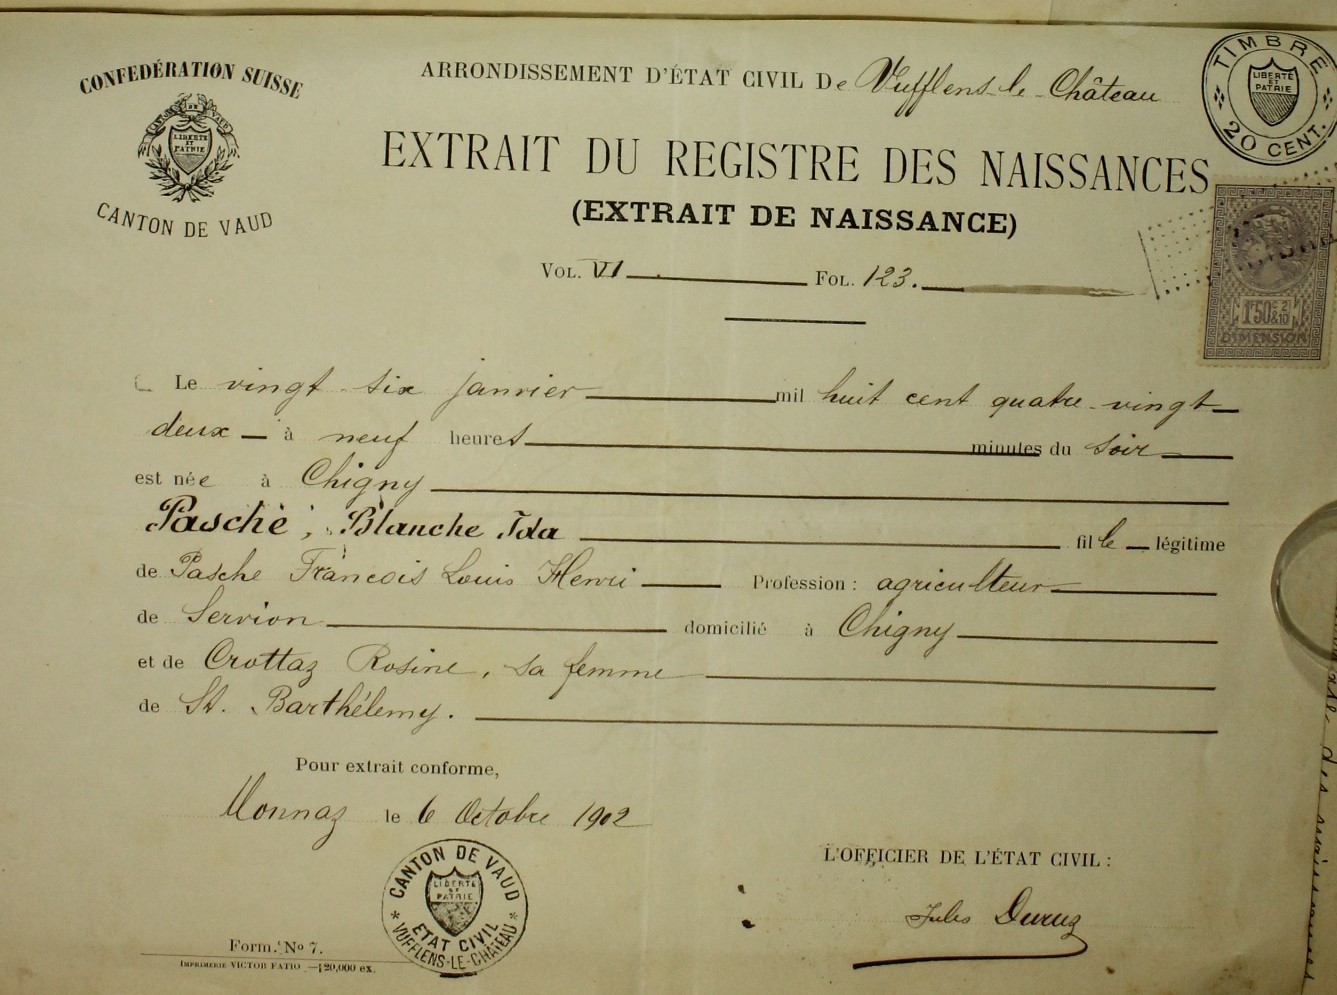 CONFEDÉRATION SUISSE
CANTON DE VAUD
LIBERTÉ
ET
PATRIE
CANTON DE VAUD
ARRONDISSEMENT D'ÉTAT CIVIL De Vufflens-le-Château
TIMBRE
LIBERTÉ
ET
PATRIE
20 CENT.
EXTRAIT DU REGISTRE DES NAISSANCES
(EXTRAIT DE NAISSANCE)
VOL. VI FOL. 123.
1F50c 2/10
DIMENSION
Le vingt-six janvier mil huit cent quatre-vingt
deux à neuf heures minutes du soir
est née à Chigny
Pasche, Blanche Ida fille légitime
de Pasche François Louis Henri Profession : agriculteur
de Servion domicilié à Chigny
et de Crottaz Rosine, sa femme
de St. Barthélemy.
Pour extrait conforme,
Monnaz le 6 Octobre 1902
L'OFFICIER DE L'ÉTAT CIVIL :
Jules Duruz
CANTON DE VAUD
LIBERTÉ
ET
PATRIE
ETAT CIVIL
VUFFLENS-LE-CHÂTEAU
Form. No 7.
IMPRIMERIE VICTOR FATIO — 120,000 ex.